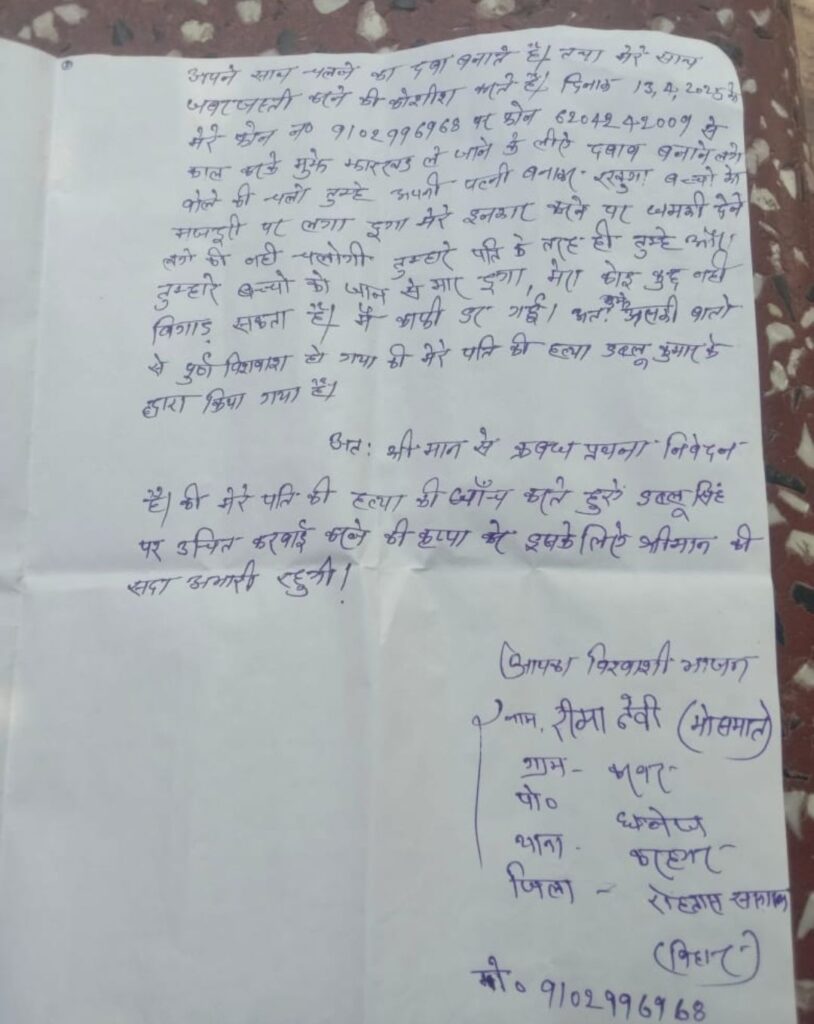 अपने साथ चलने का दबा बनाते है। तथा मेरे साथ
जबरजस्ती करने की कोशीश करते है। दिनांक 13,4,2025 के
मेरे फोन न० 9102996968 पर फोन 6204242009 से
काल करके मुझे झारखड ले जाने के लीऐ दबाव बनाने लगे
बोले की चलो तुम्हे अपनी पत्नी बनाकर रखुगा बच्चो के
मजदूरी पर लगा दुगा मेरे इनकार करने पर धमकी देने
लगे की नही चलोगी तुम्हारे पति के तरह ही तुम्हे और
तुम्हारे बच्चो को जान से मार दुगा, मेरा कोइ कुछ नही
विगाड़ सकता है। मै काफी डर गई। अतः मुझे उसकी बातो
से पुर्ण विशवाश हो गया की मेरे पति की हत्या डबलू कुमार के
द्वारा किया गया है।
अतः श्री मान से प्रथना निवेदन
है। की मेरे पति की हत्या की जाँच करते हुऐ डबलू सिंह
पर उचित करवाई करने की कृप्पा करे इसके लिऐ श्रीमान की
सदा अभारी रहुगी।
आपका विश्वाशी भाजन
नाम. रीमा देवी (मोसमात)
ग्राम-
पो०
थाना - करहगर
जिला - रोहतास सासाराम
(विहार)
मो० 9102996968